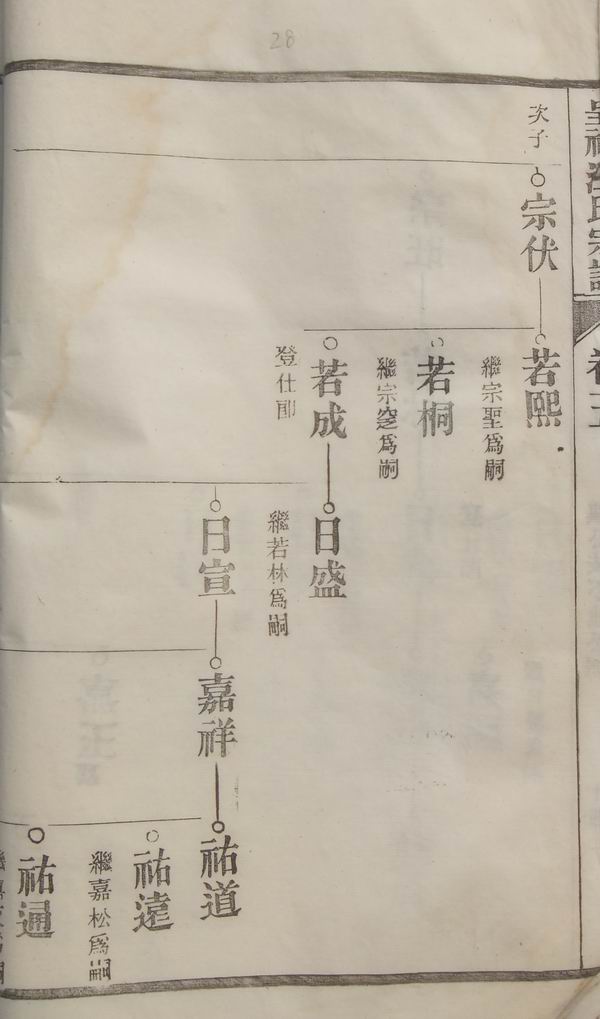 28
汪氏宗譜
卷五
次子
宗伏
若熙
繼宗聖爲嗣
若桐
繼宗窓爲嗣
若成
登仕郎
日盛
繼若林爲嗣
日宣
嘉祥
祐道
祐遠
繼嘉松爲嗣
祐通